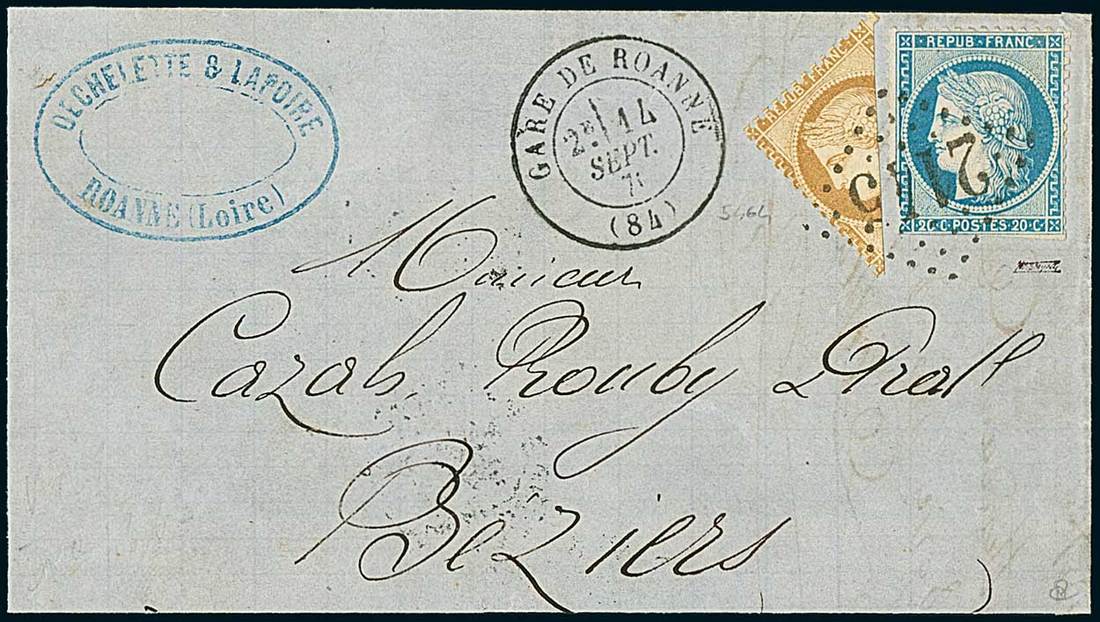 DECHELETTE & LAPOIRE
ROANNE (Loire)
GARE DE ROANNE
2E 14
SEPT.
71
(84)
REPUB. FRANC.
REPUB. FRANC.
20 C. POSTES 20 C.
5464
Monsieur
Cazals Rouby & Prall
Béziers